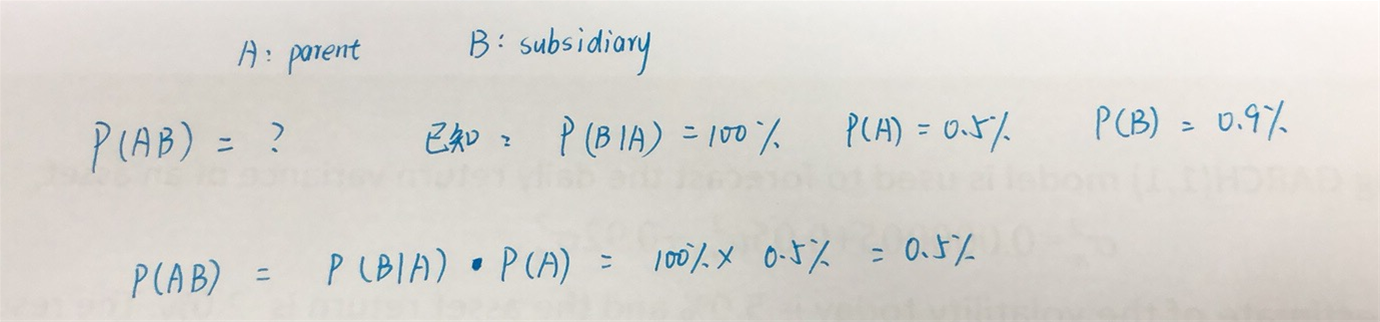 A: parent B: subsidiary
P(AB) = ? 已知: P(B|A) = 100% P(A) = 0.5% P(B) = 0.9%
P(AB) = P(B|A) • P(A) = 100% × 0.5% = 0.5%